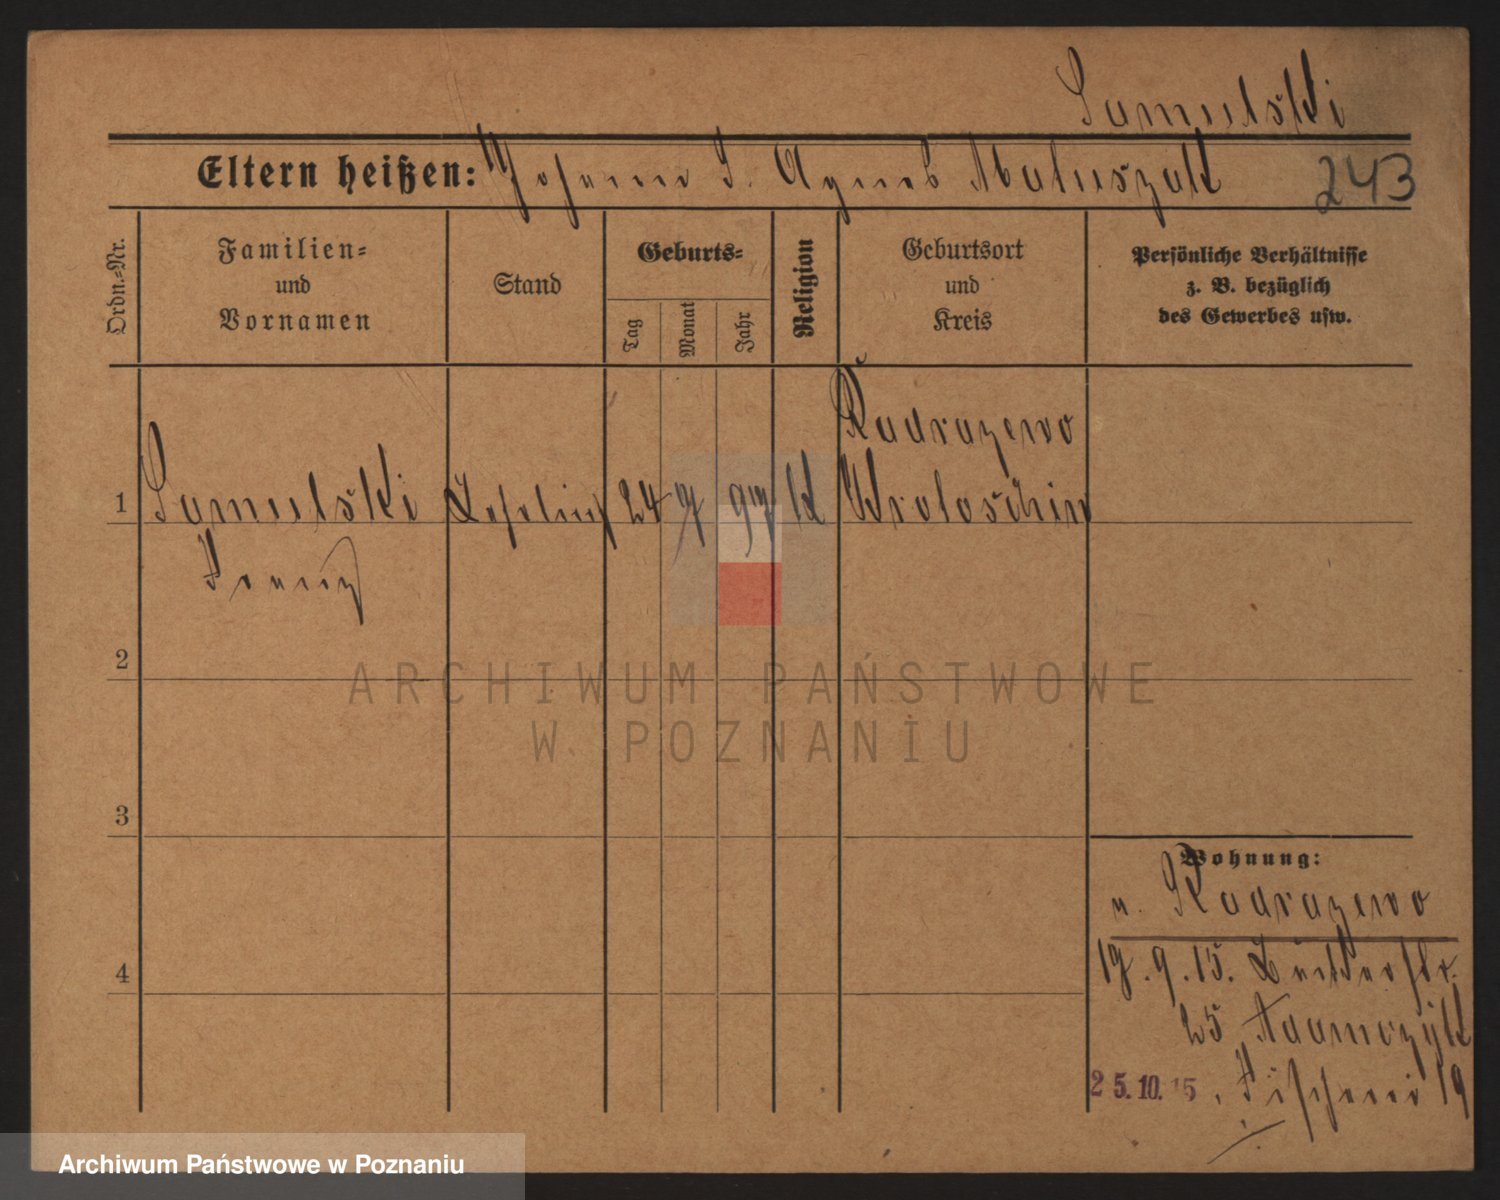 Samulski
Eltern heißen: Johann u. Agnes Matuszak 243
Ordn.-Nr.
Familien-
und
Vornamen
Stand
Geburts-
Tag
Monat
Jahr
Religion
Geburtsort
und
Kreis
Persönliche Verhältnisse
z. B. bezüglich
des Gewerbes usw.
Kadrazewo
1 Samulski 24 9 97 K Krotoschin
Franz
2
ARCHIWUM PAŃSTWOWE
W POZNANIU
3
Wohnung:
v. Kadrazewo
4
17.9.15. Bäckerstr.
25 Adamczyk
25.10.15. Fischerei 19
Archiwum Państwowe w Poznaniu